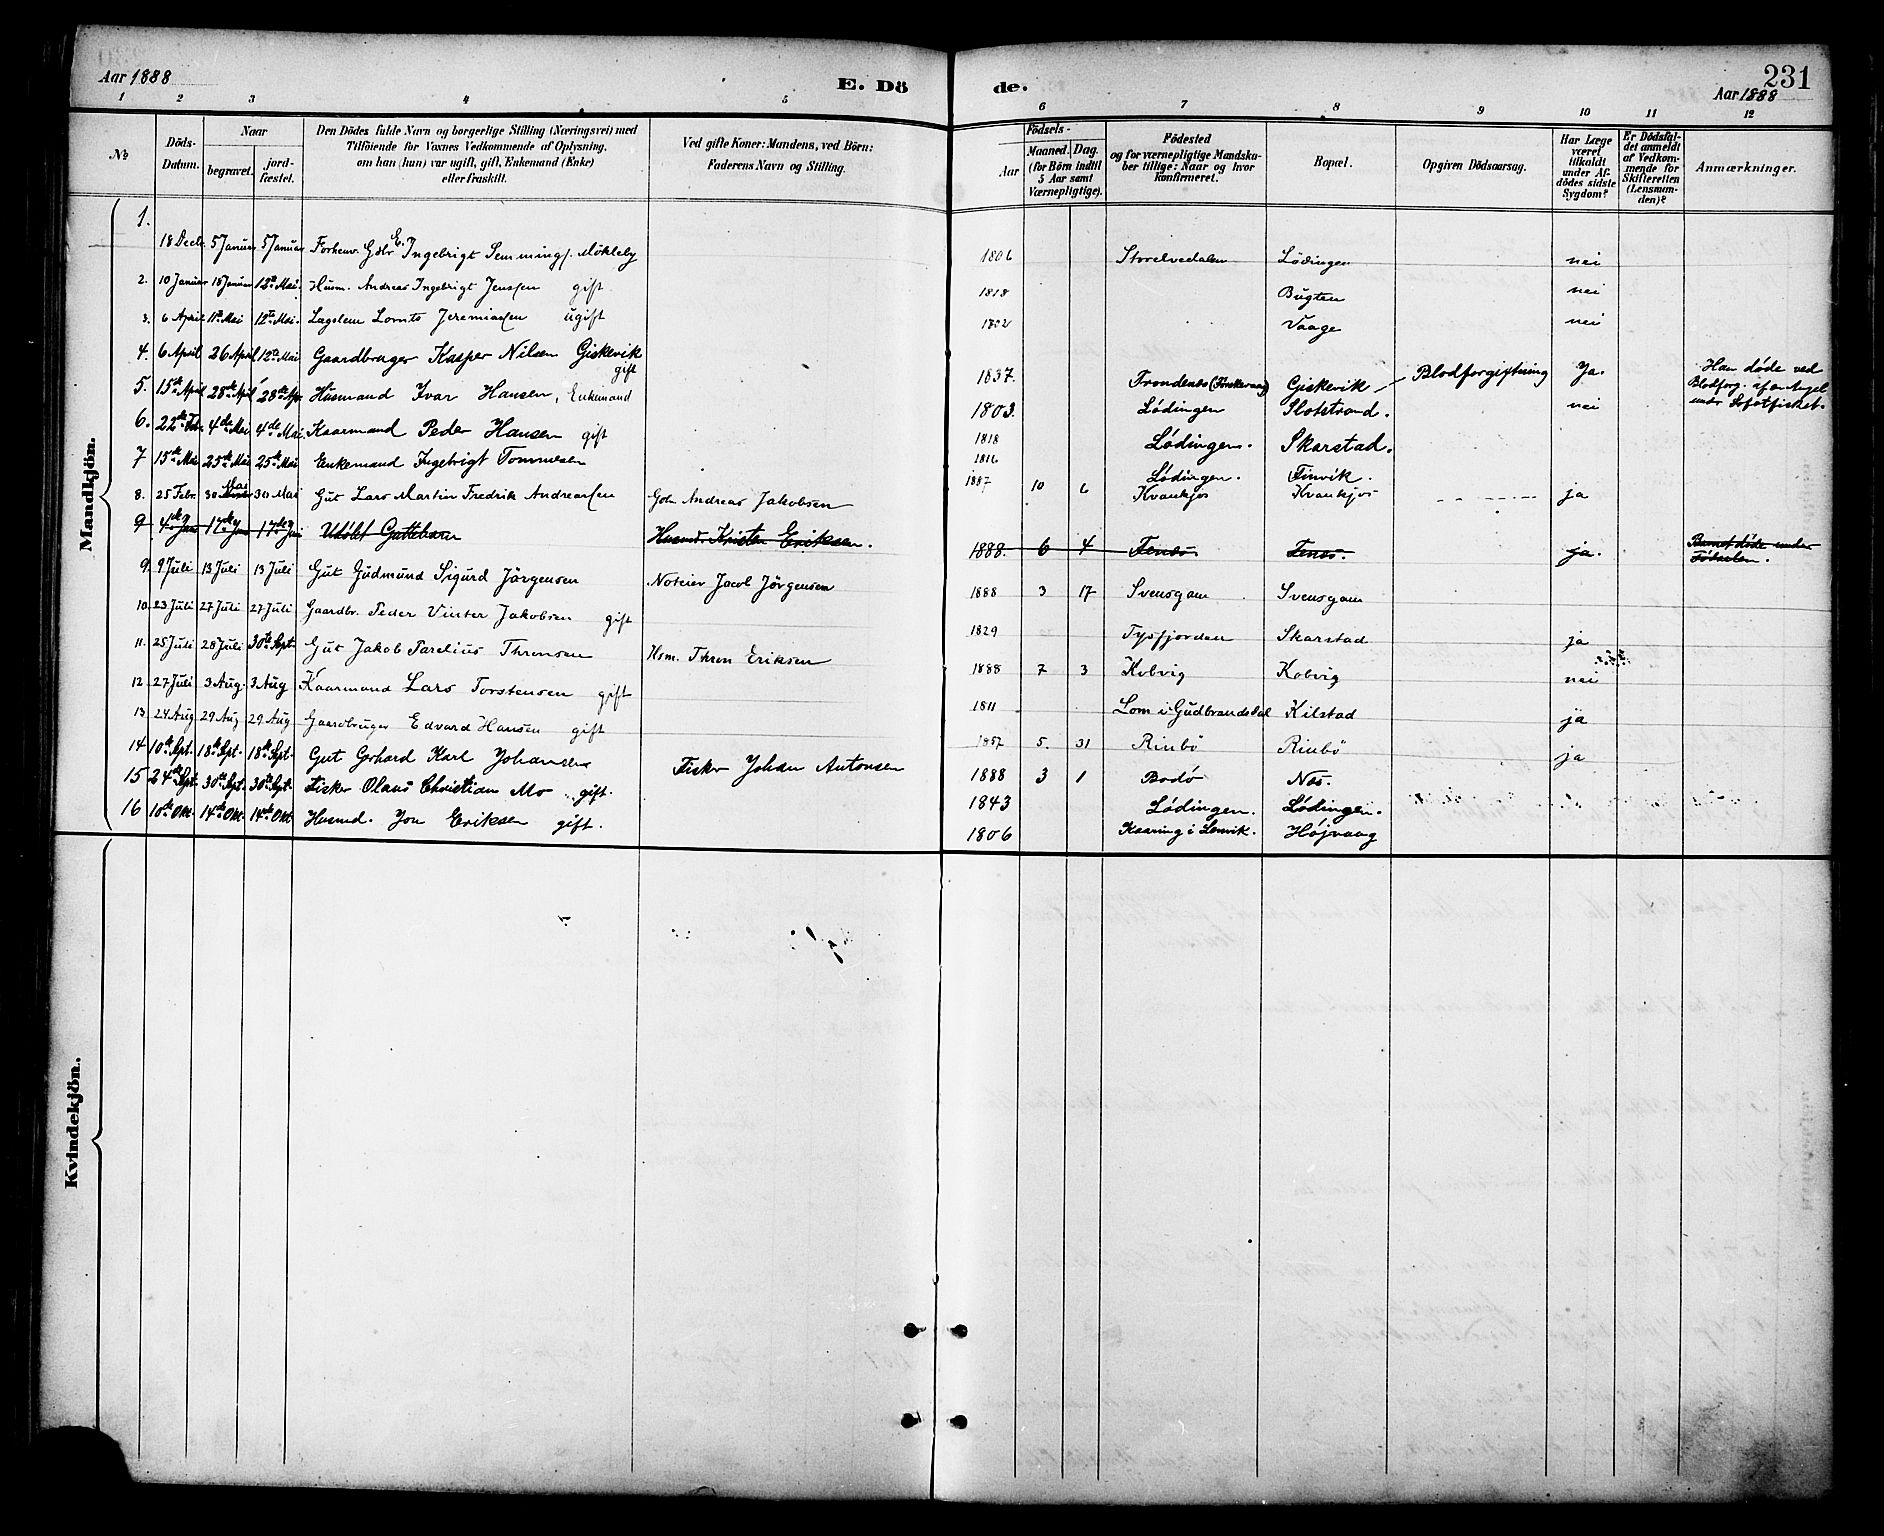 Aar 1888
E. Dö
de.
231
Aar 1888
1 2 3 4 5 6 7 8 9 10 11 12
No
Döds-Datum.
Naar
begravet.
jord-fæstet.
Den Dödes fulde Navn og borgerlige Stilling (Næringsvei) med
Tilföiende for Voxnes Vedkommende af Oplysning,
om han (hun) var ugift, gift, Enkemand (Enke)
eller fraskilt.
Ved gifte Koner: Mandens, ved Börn:
Faderens Navn og Stilling.
Födsels-
Aar
Maaned. Dag.
(for Börn indtil
5 Aar samt
Værnepligtige).
Födested
og for værnepligtige Mandska-
ber tillige: Naar og hvor
konfirmeret.
Bopæl.
Opgiven Dödsaarsag.
Har Læge
været
tilkaldt
under Af-
dödes sidste
Sygdom?
Er Dödsfal-
det anmeldt
af Vedkom-
mende for
Skifteretten
(Lensman-
den)?
Anmærkninger.
Mandkjön.
1. 18 Decb. 5 Januar 5 Januar Forhenv. Gdbr E. Ingebrigt Semmings. Mökleby 1806 Storelvedalen Lödingen nei
2. 10 Januar 18 Januar 12te Mai. Husm. Andreas Ingebrigt Jenssen gift 1818 Bugten nei
3. 6 April 11te Mai 12te Mai. Lægslem Lornts Jeremiassen ugift 1802 Vaage nei
4. 6 April 26 April 12te Mai Gaardbruger Kasper Nilsen Giskevik gift 1837. Trondenes Giskevik Blodforgiftning Ja. Han døde ved Blodforg. af en Angel under Lofotfisket.
5. 15de April 28de April 28de Apr. Husmand Ivar Hansen, Enkemand 1803. Lødingen Slotstrand. nei
6. 22de Febr. 4de Mai 4de Mai. Kaarmand Peder Hansen gift 1818 Lødingen. Skarstad.
7 15de Mai 25de Mai 25de Mai Enkemand Ingebrigt Tommesen 1816 Lødingen. Finvik.
8. 25 Febr. 30 Mai 30 Mai Gut Lars Martin Fredrik Andreassen Gdb. Andreas Jakobsen 1887 10 6 Kvankjos Kvankjos ja
9 4de Juni 17de Juni 17de Juni Udøbt Guttebarn Husmd. Kristen Eriksen. 1888 6 4 Tenes. Tenes. ja. Barnet døde under Fødselen.
9. 9 Juli 13 Juli 13 Juli Gut Gudmund Sigurd Jörgensen Noteier Jacob Jörgensen 1888 3 17 Svensgam Svensgam
10. 23 Juli 27 Juli 27 Juli Gaardbr. Peder Vinter Jakobsen gift 1829 Tysfjorden Skarstad ja
11. 25 Juli 28 Juli 30te Sept. Gut Jakob Parelius Thronsen Hsm. Thron Eriksen 1888 7 3 Kobvig Kobvig nei
12. 27 Juli 3 Aug. 3 Aug Kaarmand Lars Torstensen gift 1811 Lom i Gudbrandsdal Kilstad ja
13. 24 Aug 29 Aug 29 Aug Gaardbruger Edvard Hansen gift 1857 5. 31 Rinbö Rinbö ja
14 10de Sept. 18de Sept. 18de Sept. Gut Gerhard Karl Johansen Fisker Johan Antonsen 1888 3 1 Bodø Nes.
15 24de Sept. 30te Sept. 30te Sept. Fisker Olaus Christian Mo gift. 1843 Lødingen. Lødingen.
16 10de Okt. 14de Okt. 14de Okt. Husmd. Jon Eriksen gift. 1806 Kaaring i Lenvik. Højvaag
Kvindekjön.